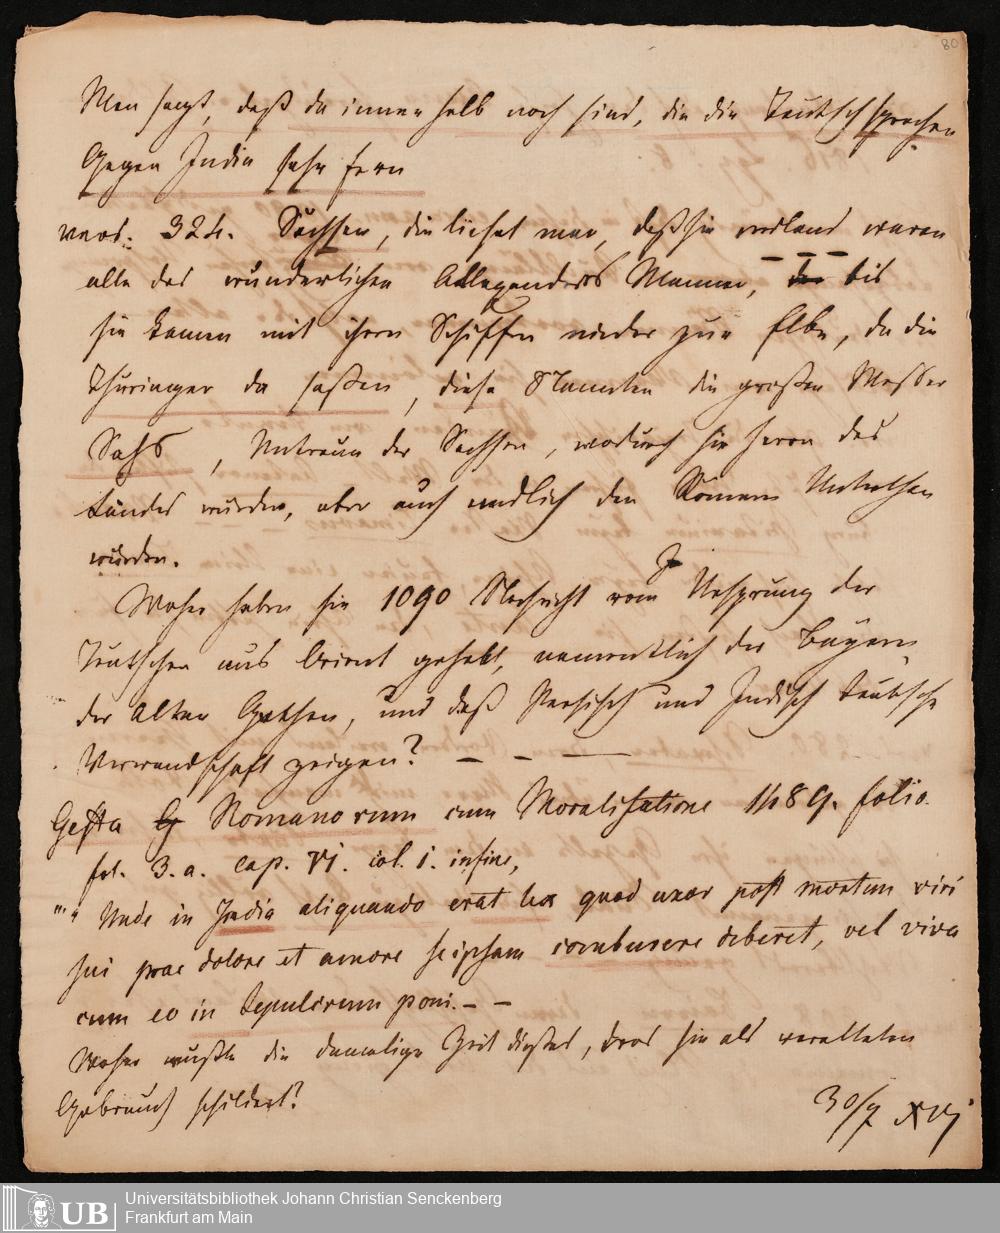 80
Man sagt, daß da innen halb noch sind, die die Teutsch sprechen
Gegen India sehr fern
vers: 324. Sachsen, die liest man, daß sie
alle des wunderlichen Allexanders Manne, der bis
sie kamen mit ihren Schiffen nieder zur Elbe, da die
Thüringer da saßen, diese die großen Messer
Sahs, Untreue der Sachsen, wodurch sie Herrn des
Landes wurden, aber auch endlich den Römern Unterthan
wurden.
Woher haben sie 1090 Nachricht vom Ursprung der
Teutschen aus Orient gehabt, namentlich der Bayern,
der Alten Gothen, und daß Persisch und Indisch teutsche
Verwandschaft zeigen? – – —
Gesta Romanorum cum Moralisatione 1489. folio.
fol. 3. a. cap. VI. col. 1. in fine,
" Unde in India aliquando erat lex quod uxor post mortem viri
sui prae dolore et amore seipsam comburere deberet, vel viva
cum eo in sepulcrum poni. – –
Woher wußte die damalige Zeit dieses, das sie als veralteten
Gebrauch schildert?
30/7 XVI
UB
Universitätsbibliothek Johann Christian Senckenberg
Frankfurt am Main